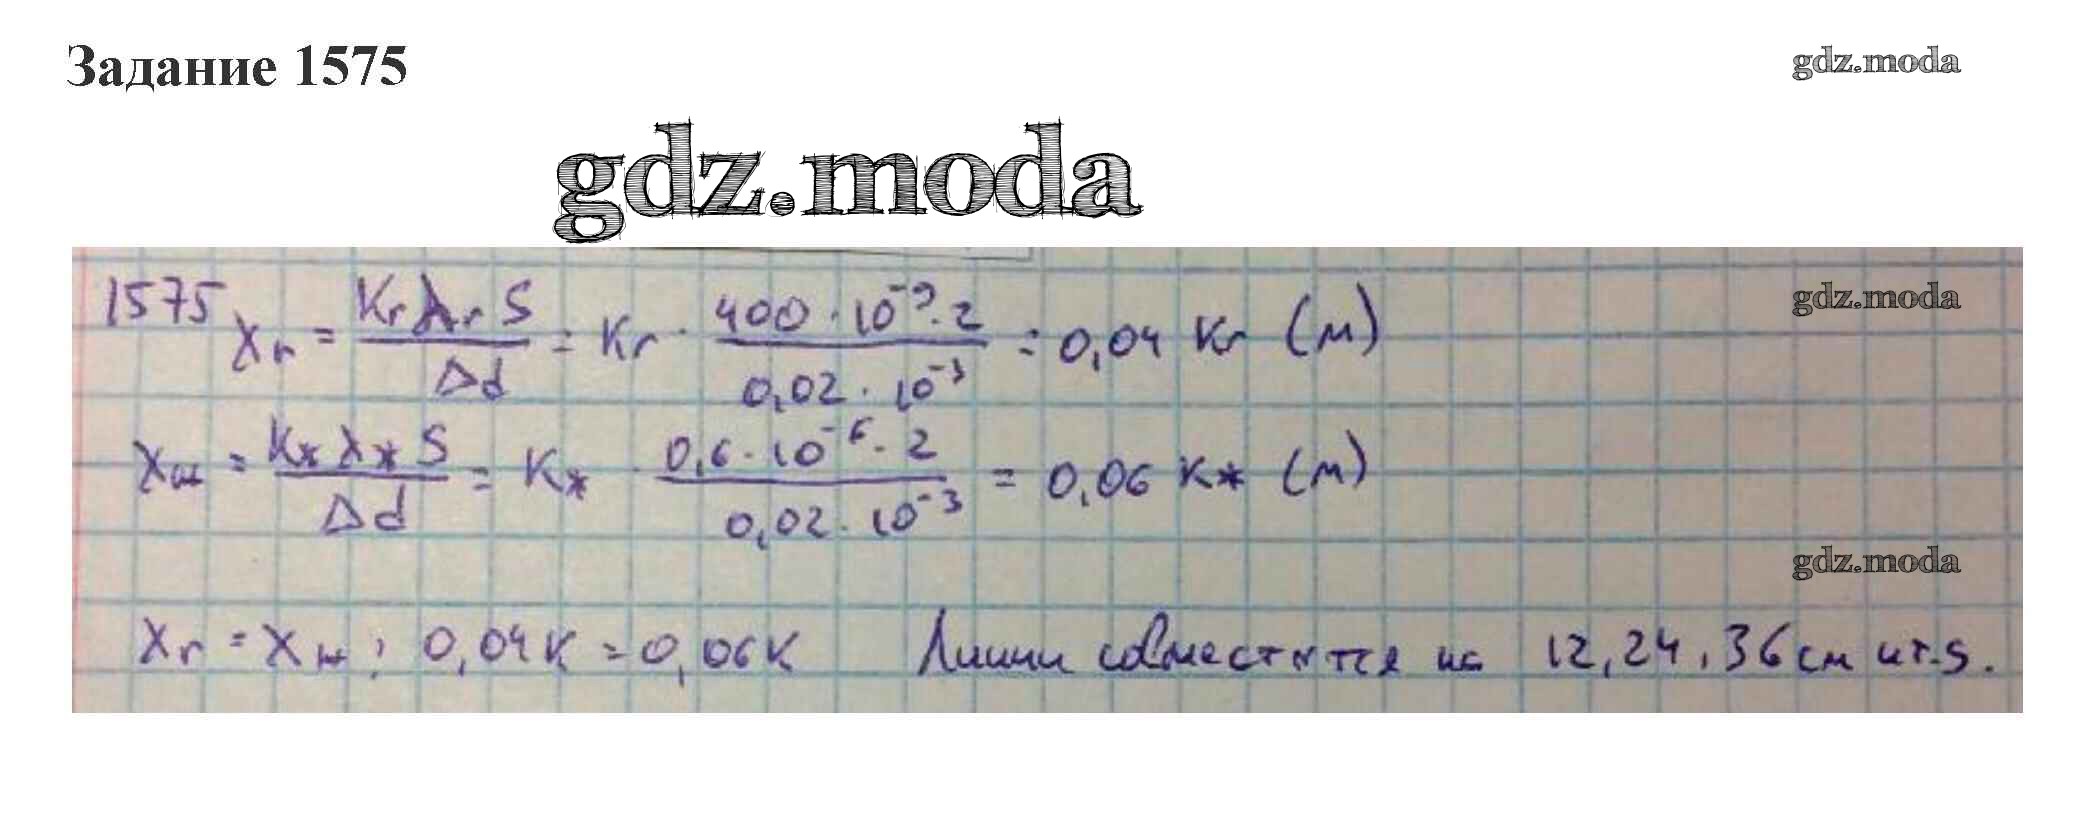 Задание 1575
gdz.moda
gdz.moda
1575 Xг = KгλгS / Δd = Kг · 400 · 10⁻⁹ · 2 / 0,02 · 10⁻³ = 0,04 Kг (м)
gdz.moda
Xж = KжλжS / Δd = Kж · 0,6 · 10⁻⁶ · 2 / 0,02 · 10⁻³ = 0,06 Kж (м)
gdz.moda
Xг = Xж ; 0,04K = 0,06K Линии совместятся на 12, 24, 36 см и т.д.